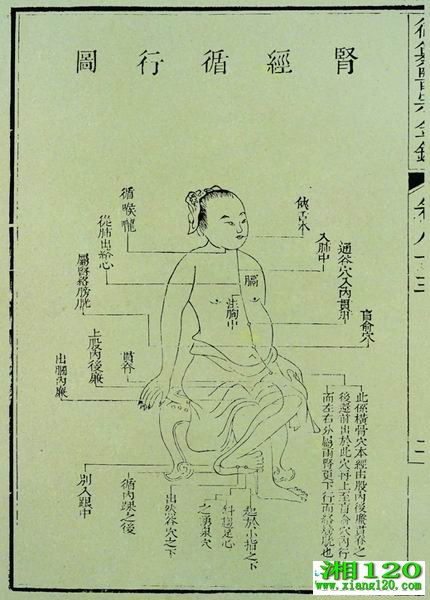 腎經循行圖
御纂醫宗金鑑
卷八十三
挾舌本
入肺中
通谷穴入內貫肝
肓俞穴
循喉嚨
從肺出絡心
屬腎絡膀胱
膈
注胸中
貫脊
上股內後廉
出膕內廉
此係橫骨穴本經由股內後廉貫脊之
後還前出於此穴再上至肓俞穴內行
而左右分屬兩腎更下行而絡膀胱也
起於小指之下
斜趨足心
之湧泉穴
出然谷穴之下
循內踝之後
別入跟中
湘120
www.xiang120.com